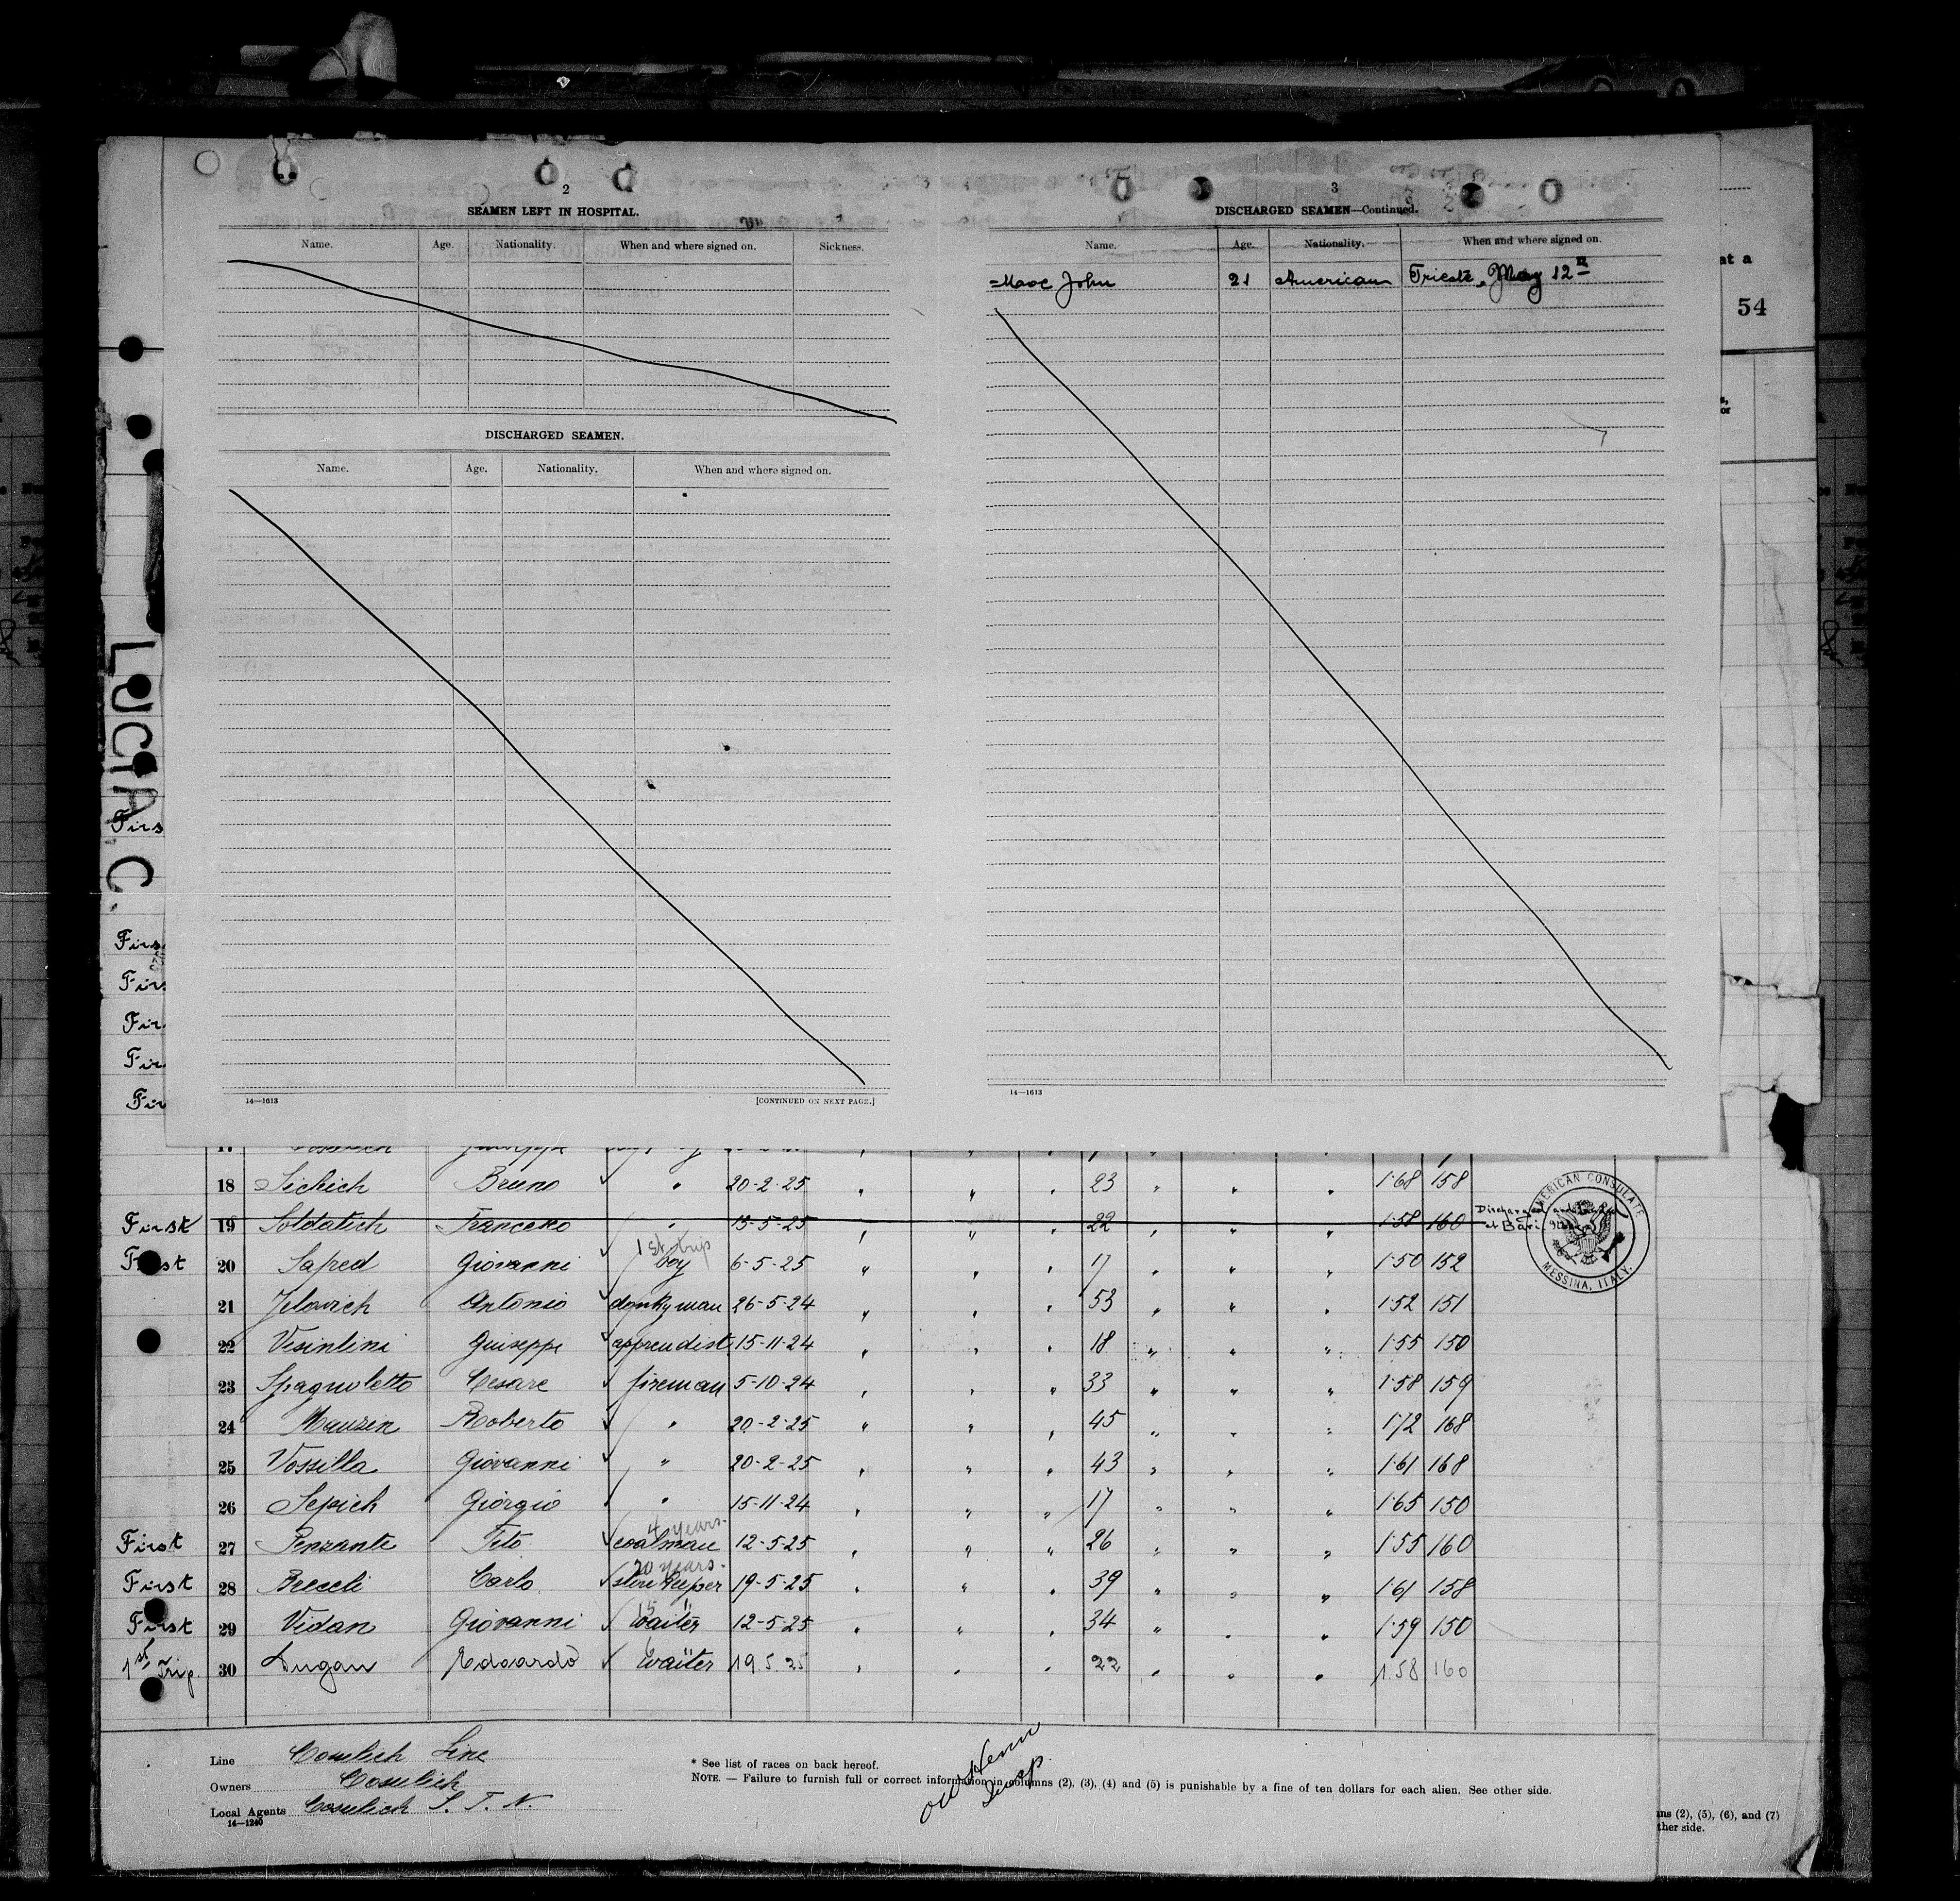 2
SEAMEN LEFT IN HOSPITAL.
Name. Age. Nationality. When and where signed on. Sickness.
DISCHARGED SEAMEN.
Name. Age. Nationality. When and where signed on.
14—1613 [CONTINUED ON NEXT PAGE.]
3
DISCHARGED SEAMEN—Continued.
Name. Age. Nationality. When and where signed on.
John 21 American Trieste, May 12
14—1613
at a
54
LUCIA C.
Firs
Firs
Firs
Fir
Fir
Fir
17
18 Sichich Bruno " 20-2-25 " " " 23 " " " 1·68 158
First 19 Soldatich Francesco " 13-5-25 " " " 22 " " " 1·58 160 Discharged at Bari
AMERICAN CONSULATE
MESSINA, ITALY.
1st trip
First 20 Safred Giovanni boy 6-5-25 " " " 17 " " " 1·50 152
21 Jelovich Antonio donkyman 26-5-24 " " " 53 " " " 1·52 151
22 Visintini Guiseppe apprendist 15-11-24 " " " 18 " " " 1·55 150
23 Spagnoletto Cesare fireman 5-10-24 " " " 33 " " " 1·58 159
24 Mauzen Roberto " 20-2-25 " " " 45 " " " 1·72 168
25 Vossilla Giovanni " 20-2-25 " " " 43 " " " 1·61 168
26 Sepich Giorgio " 15-11-24 " " " 17 " " " 1·65 150
4 years.
First 27 Penzante Tito coalman 12-5-25 " " " 26 " " " 1·55 160
20 years.
First 28 Carlo storekeeper 19-5-25 " " " 39 " " " 1·61 158
15 "
First 29 Vidan Giovanni waiter 12-5-25 " " " 34 " " " 1·59 150
1st Trip. 30 Dugan Edoardo Waiter 19.5.25 " " " 22 " " " 1.58 160
Line Cosulich Line
Owners Cosulich
Local Agents Cosulich S. T. N.
14—1240
* See list of races on back hereof.
NOTE. — Failure to furnish full or correct information in columns (2), (3), (4) and (5) is punishable by a fine of ten dollars for each alien. See other side.
Insp.
ns (2), (5), (6), and (7)
ther side.